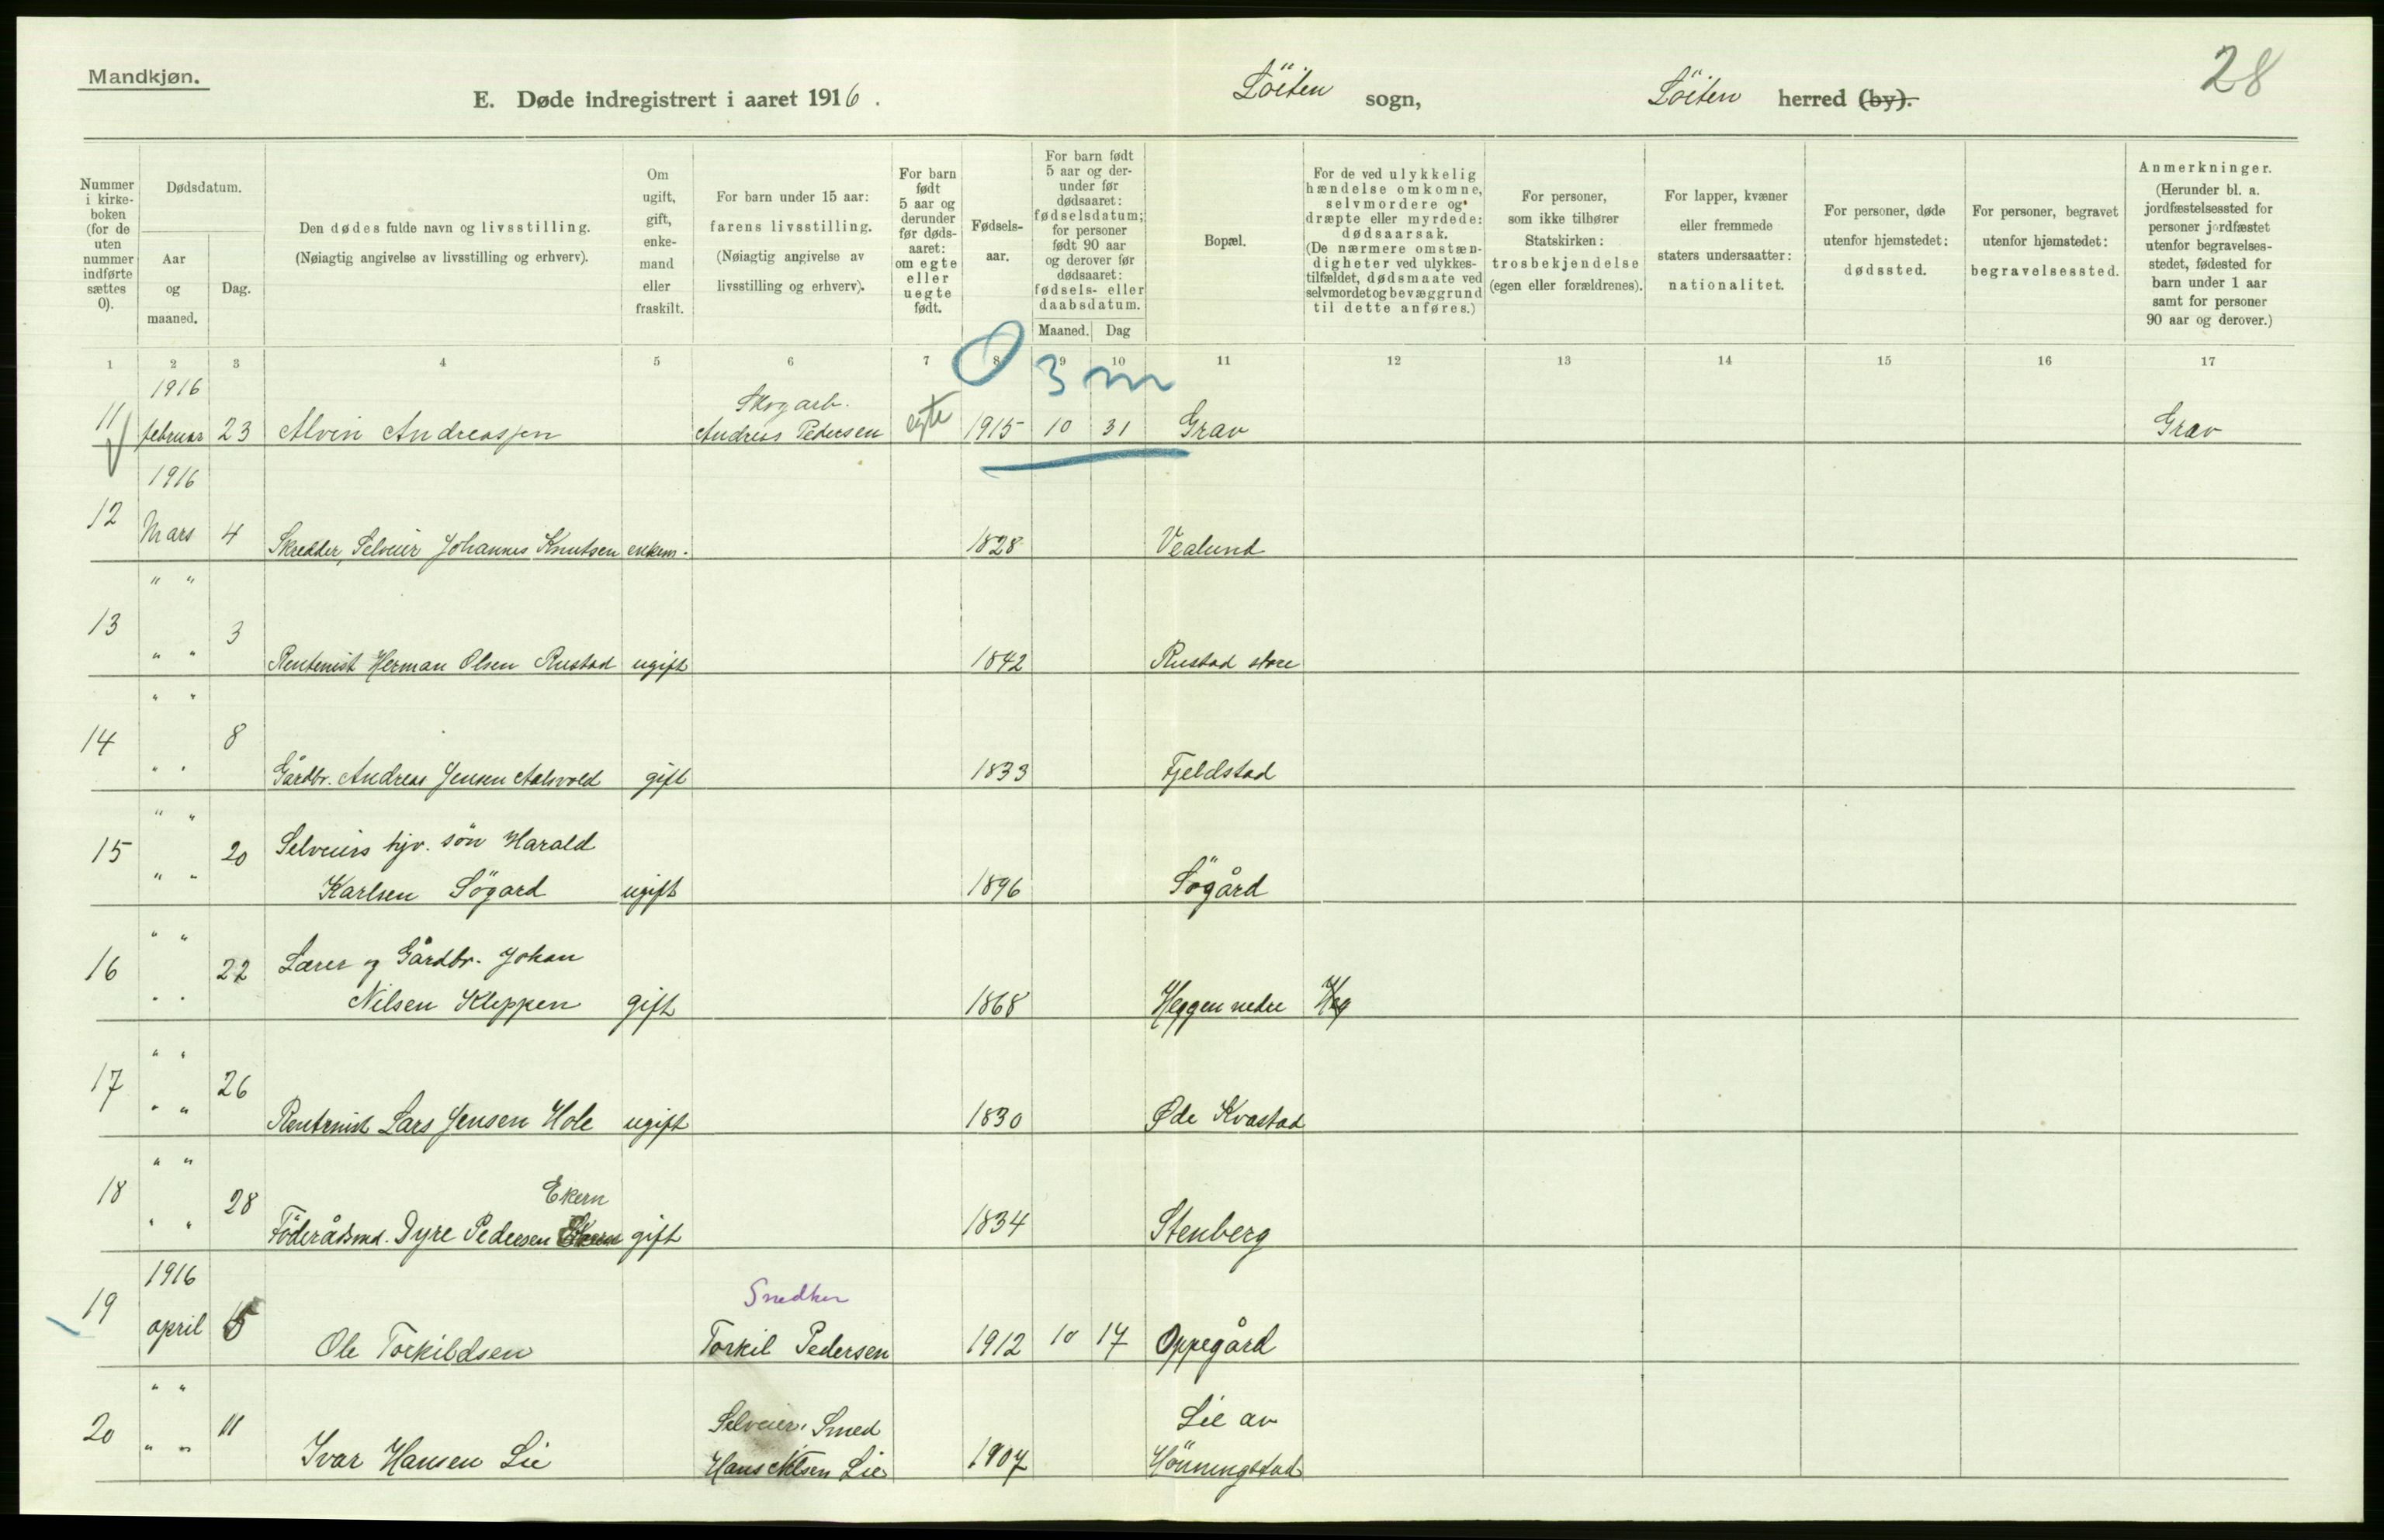 Mandkjøn.
28
E. Døde indregistrert i aaret 1916.
Löiten sogn,
Löiten herred (by).
Nummer i kirke-boken (for de uten nummer indførte sættes 0).
Dødsdatum.
Aar og maaned.
Dag.
Den dødes fulde navn og livsstilling.
(Nøiagtig angivelse av livsstilling og erhverv).
Om ugift, gift, enke-mand eller fraskilt.
For barn under 15 aar:
farens livsstilling.
(Nøiagtig angivelse av livsstilling og erhverv).
For barn født 5 aar og derunder før døds-aaret: om egte eller uegte født.
Fødsels-aar.
For barn født 5 aar og der-under før dødsaaret: fødselsdatum; for personer født 90 aar og derover før dødsaaret: fødsels- eller daabsdatum.
Maaned. Dag
Bopæl.
For de ved ulykkelig hændelse omkomne, selvmordere og dræpte eller myrdede: dødsaarsak.
(De nærmere omstæn-digheter ved ulykkes-tilfældet, dødsmaate ved selvmordet og bevæggrund til dette anføres.)
For personer, som ikke tilhører Statskirken: trosbekjendelse (egen eller forældrenes).
For lapper, kvæner eller fremmede staters undersaatter: nationalitet.
For personer, døde utenfor hjemstedet: dødssted.
For personer, begravet utenfor hjemstedet: begravelsessted.
Anmerkninger.
(Herunder bl. a. jordfæstelsessted for personer jordfæstet utenfor begravelses-stedet, fødested for barn under 1 aar samt for personer 90 aar og derover.)
1 2 3 4 5 6 7 8 9 10 11 12 13 14 15 16 17
0 3 m
1916
Skogarb.
11 februar 23 Alvin Andreassen Andreas Pedersen egte 1915 10 31 Grav Grav
1916
12 Mars 4 Skredder, Selveier Johannes Knutsen enkem. 1828 Vealund
" "
13 " " 3 Rentenist Herman Olsen Rustad ugift 1842 Rustad store
" "
14 " " 8 Gårdbr. Andreas Jensen Aalsvold gift 1833 Fjeldstad
" "
15 20 Selveiers hjv. sön Harald
" " Karlsen Sögard ugift 1896 Sögård
" "
16 22 Lærer og Gårdbr. Johan
" " Nilsen Kleppen gift 1868 Heggen nedre Heg
" "
17 " " 26 Rentenist Lars Jensen Hole ugift 1830 Øde Kvastad
" "
Ekern
18 " " 28 Föderådsmd. Dyre Pedersen Ekern gift 1834 Stenberg
1916
Snedker
19 april 5 Ole Torkildsen Torkil Pedersen 1912 10 17 Oppegård
" "
Selveier, Smed Lie av
20 " " 11 Ivar Hansen Lie Hans Nilsen Lie 1907 Hönningstad